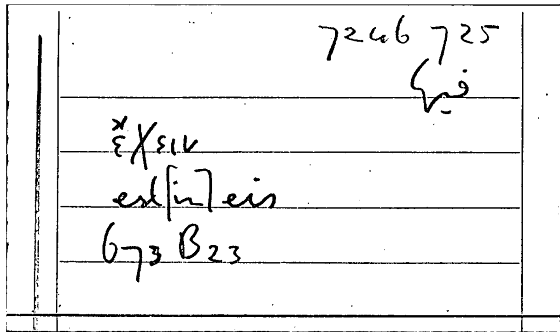 7246 725
في
ἔχειν
est[in] eis
673 B23